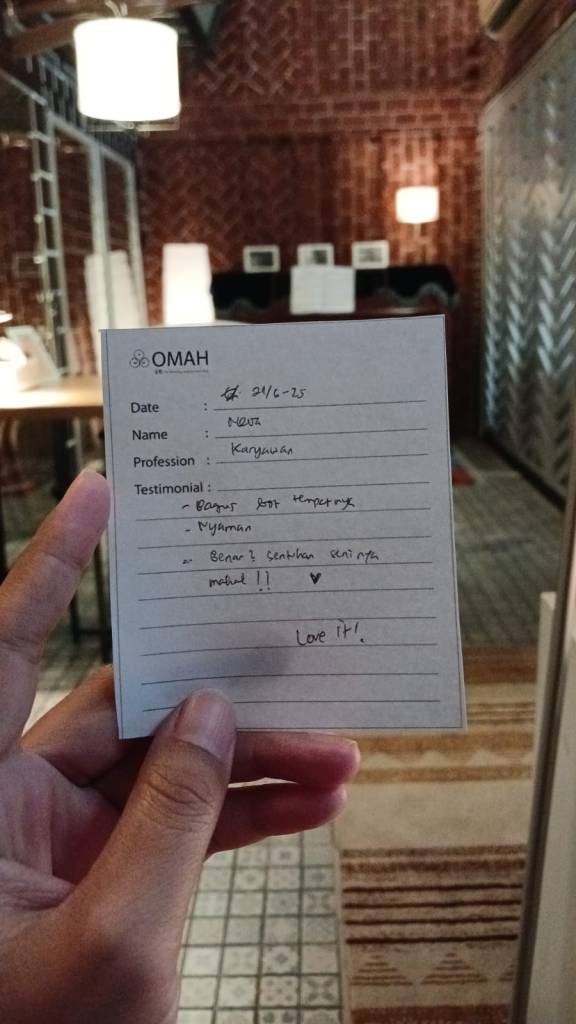 OMAH
Date : 21/6-25
Name : Neva
Profession : Karyawan
Testimonial :
- Bagus bgt tempatnya
- Nyaman
- Benar2 sentuhan seninya
mahal !! ♥
Love it!